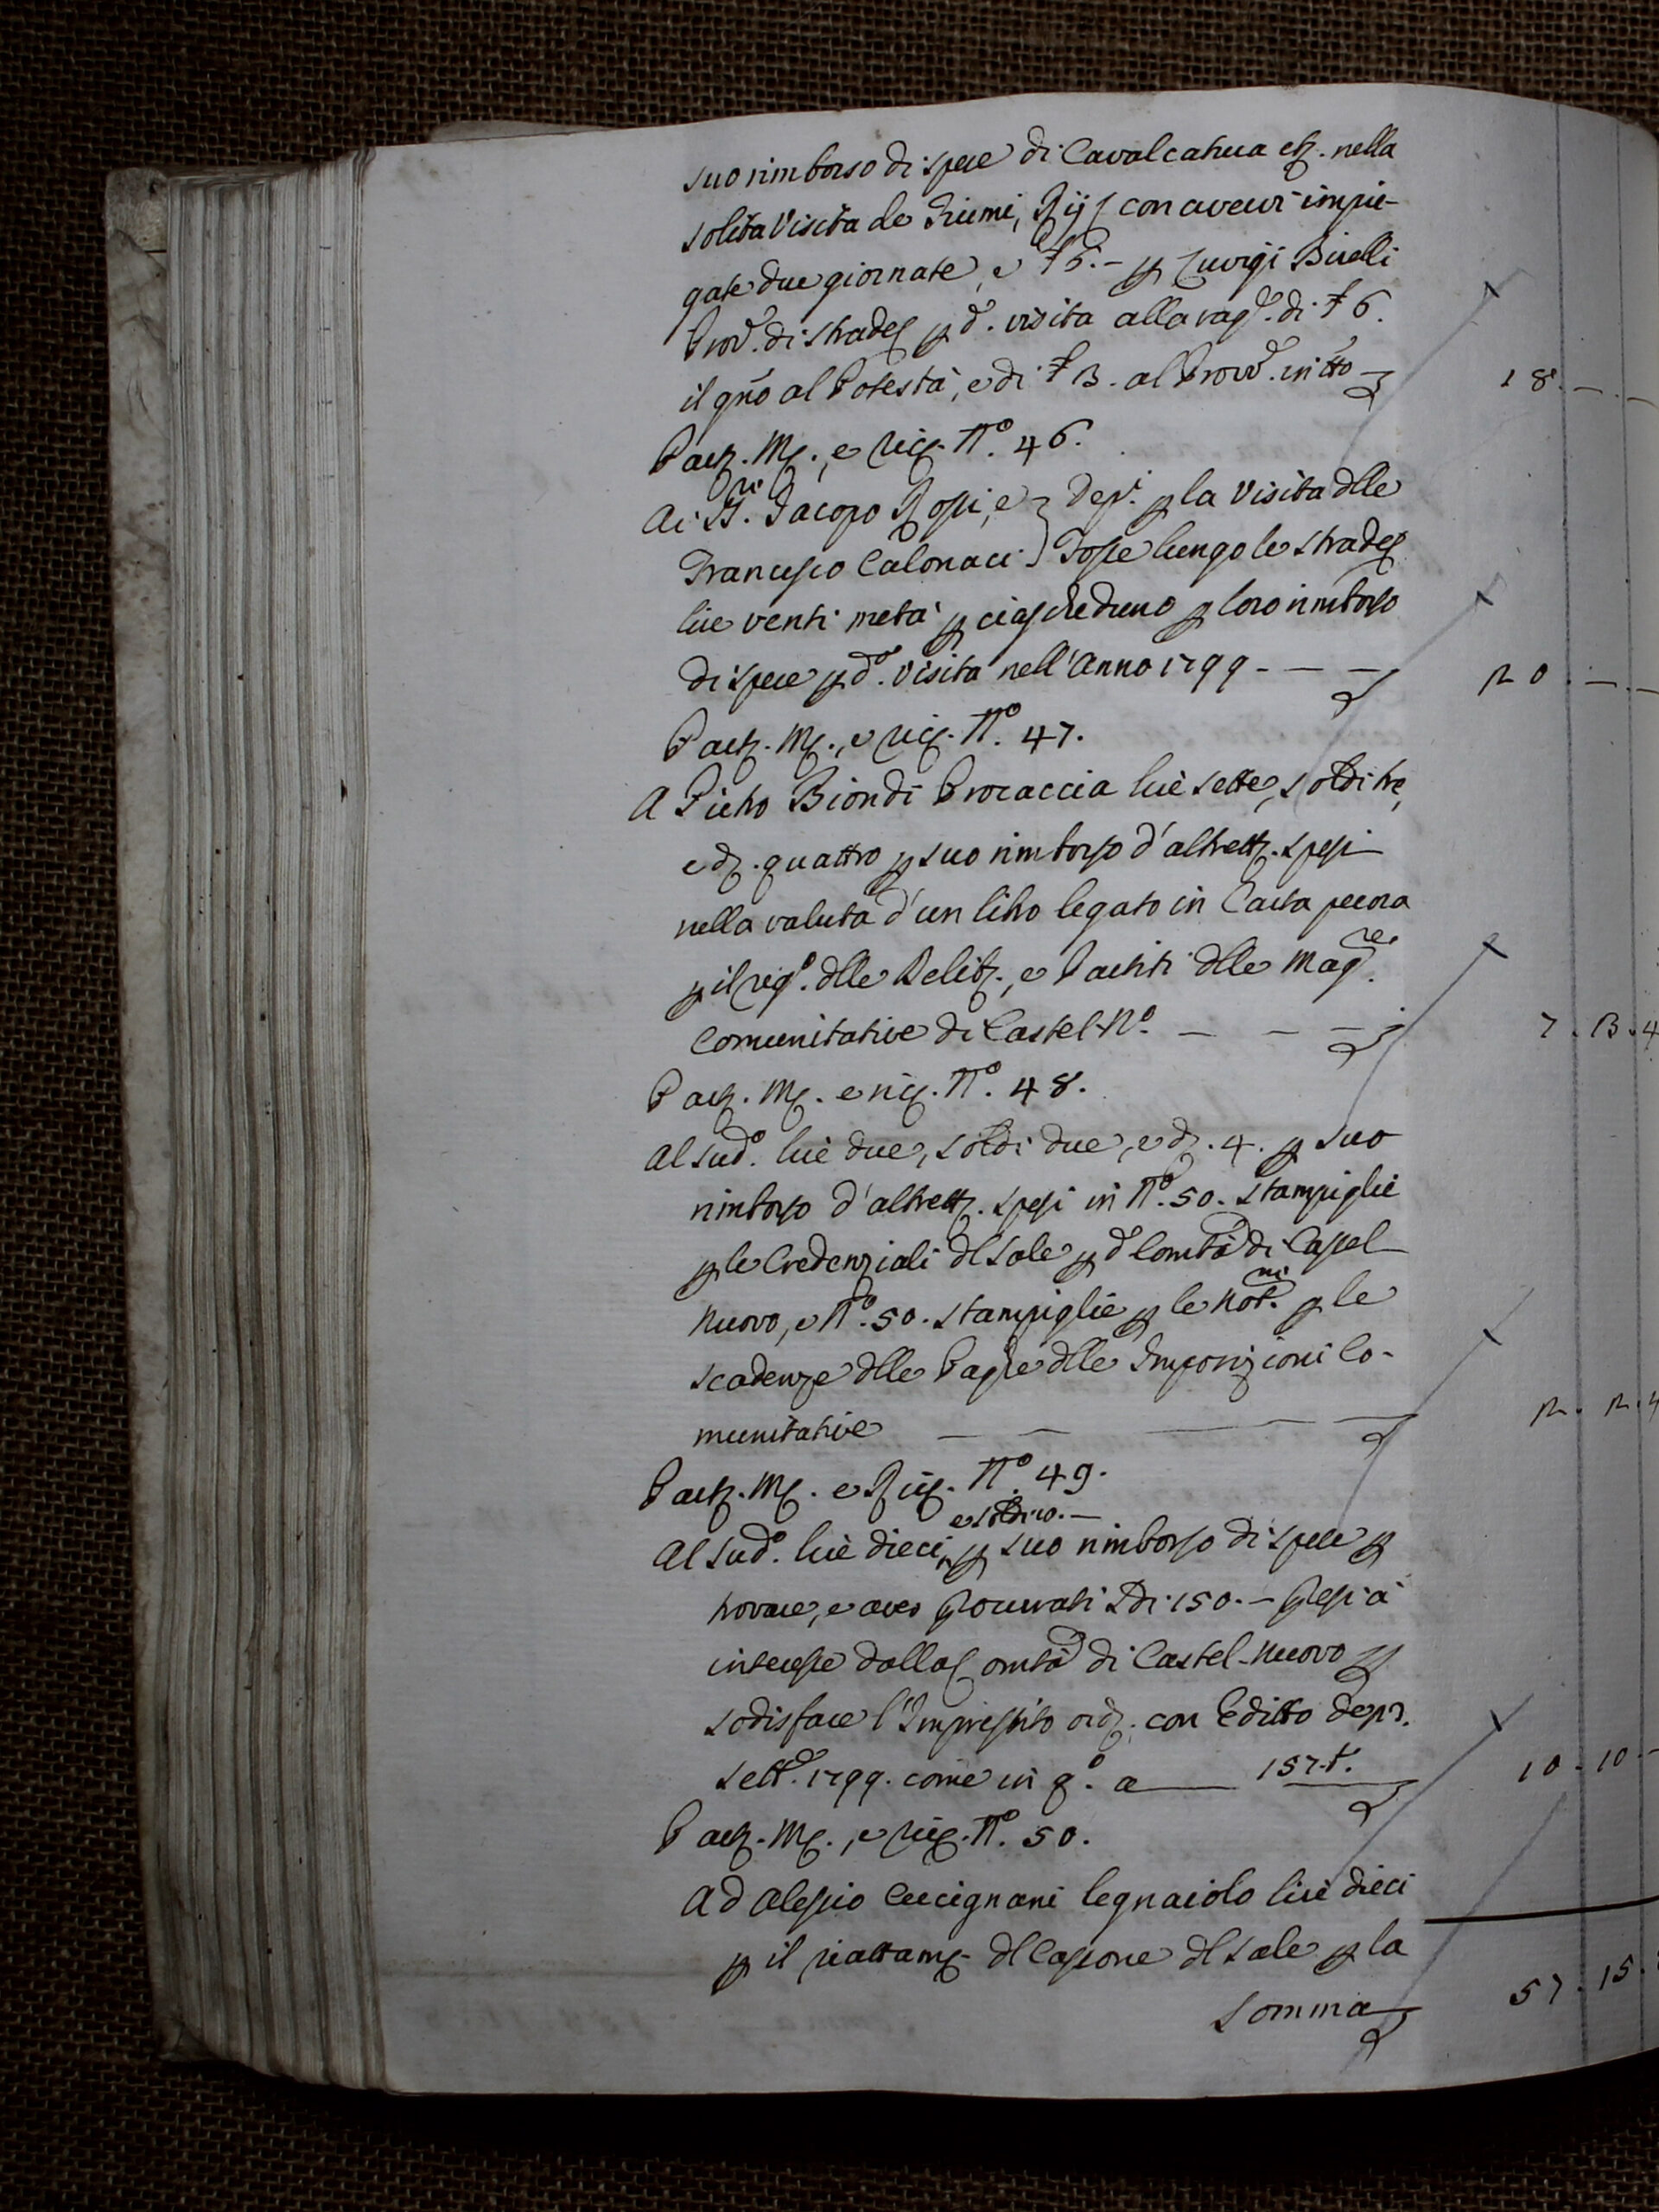 suo rimborso di spese di Cavalcatura etc. nella
solita Visita de Fiumi, Rij con avervi impie-
gate due giornate, e £ 6.- p Luigi Birelli
Provv.e di strade p d.a visita alla rag.e di £ 6.
il gno al Potestà, e di £ 3. al Provv.e in tto 18. — . —
Part. M., e ric. N.o 46.
Ai SS.ri Jacopo Rossi, e } Dep.i p la Visita dlle
Francesco Calonaci } Fosse lungo le strade
lire venti metà p ciascheduno p loro rimborso
di spese p d.a visita nell'Anno 1799 - — — 20. — . —
Part. M., e ric. N.o 47.
A Pietro Biondi Procaccia lire sette, soldi tre,
e d. quattro p suo rimborso d'altrett. spesi
nella valuta d'un libro legato in Carta pecora
p il reg.o dlle Delib., e Partiti dlle Mag.re
Comunitative di Castel-N.o — — — 7. 3. 4
Part. M. e ric. N.o 48.
Al sud.o lire due, soldi due, e d. 4. p suo
rimborso d'altrett. spesi in N.o 50. stampiglie
p le Credenziali dl Sale p d.a Comtà di Castel-
nuovo, e N.o 50. stampiglie p le Not.ni p le
scadenze dlle Paghe dlle Imposizioni Co-
munitative — — — — — 2. 2. 4
Part. M. e Ric. N.o 49.
e soldi 10. —
Al sud.o lire dieci, p suo rimborso di spese p
trovare, e aver procurati Sdi 150. — presi a
interesse dalla Comtà di Castel-nuovo p
sodisfare l'Imprestito ord. con Editto de pr.
Sett.e 1799. come in q.o a — 157.t. 10. 10. —
Part. M., e ric. N.o 50.
Ad Alessio Cucignani legnaiolo lire dieci
p il riattam. dl Cassone dl Sale p la
Somma 57. 15.